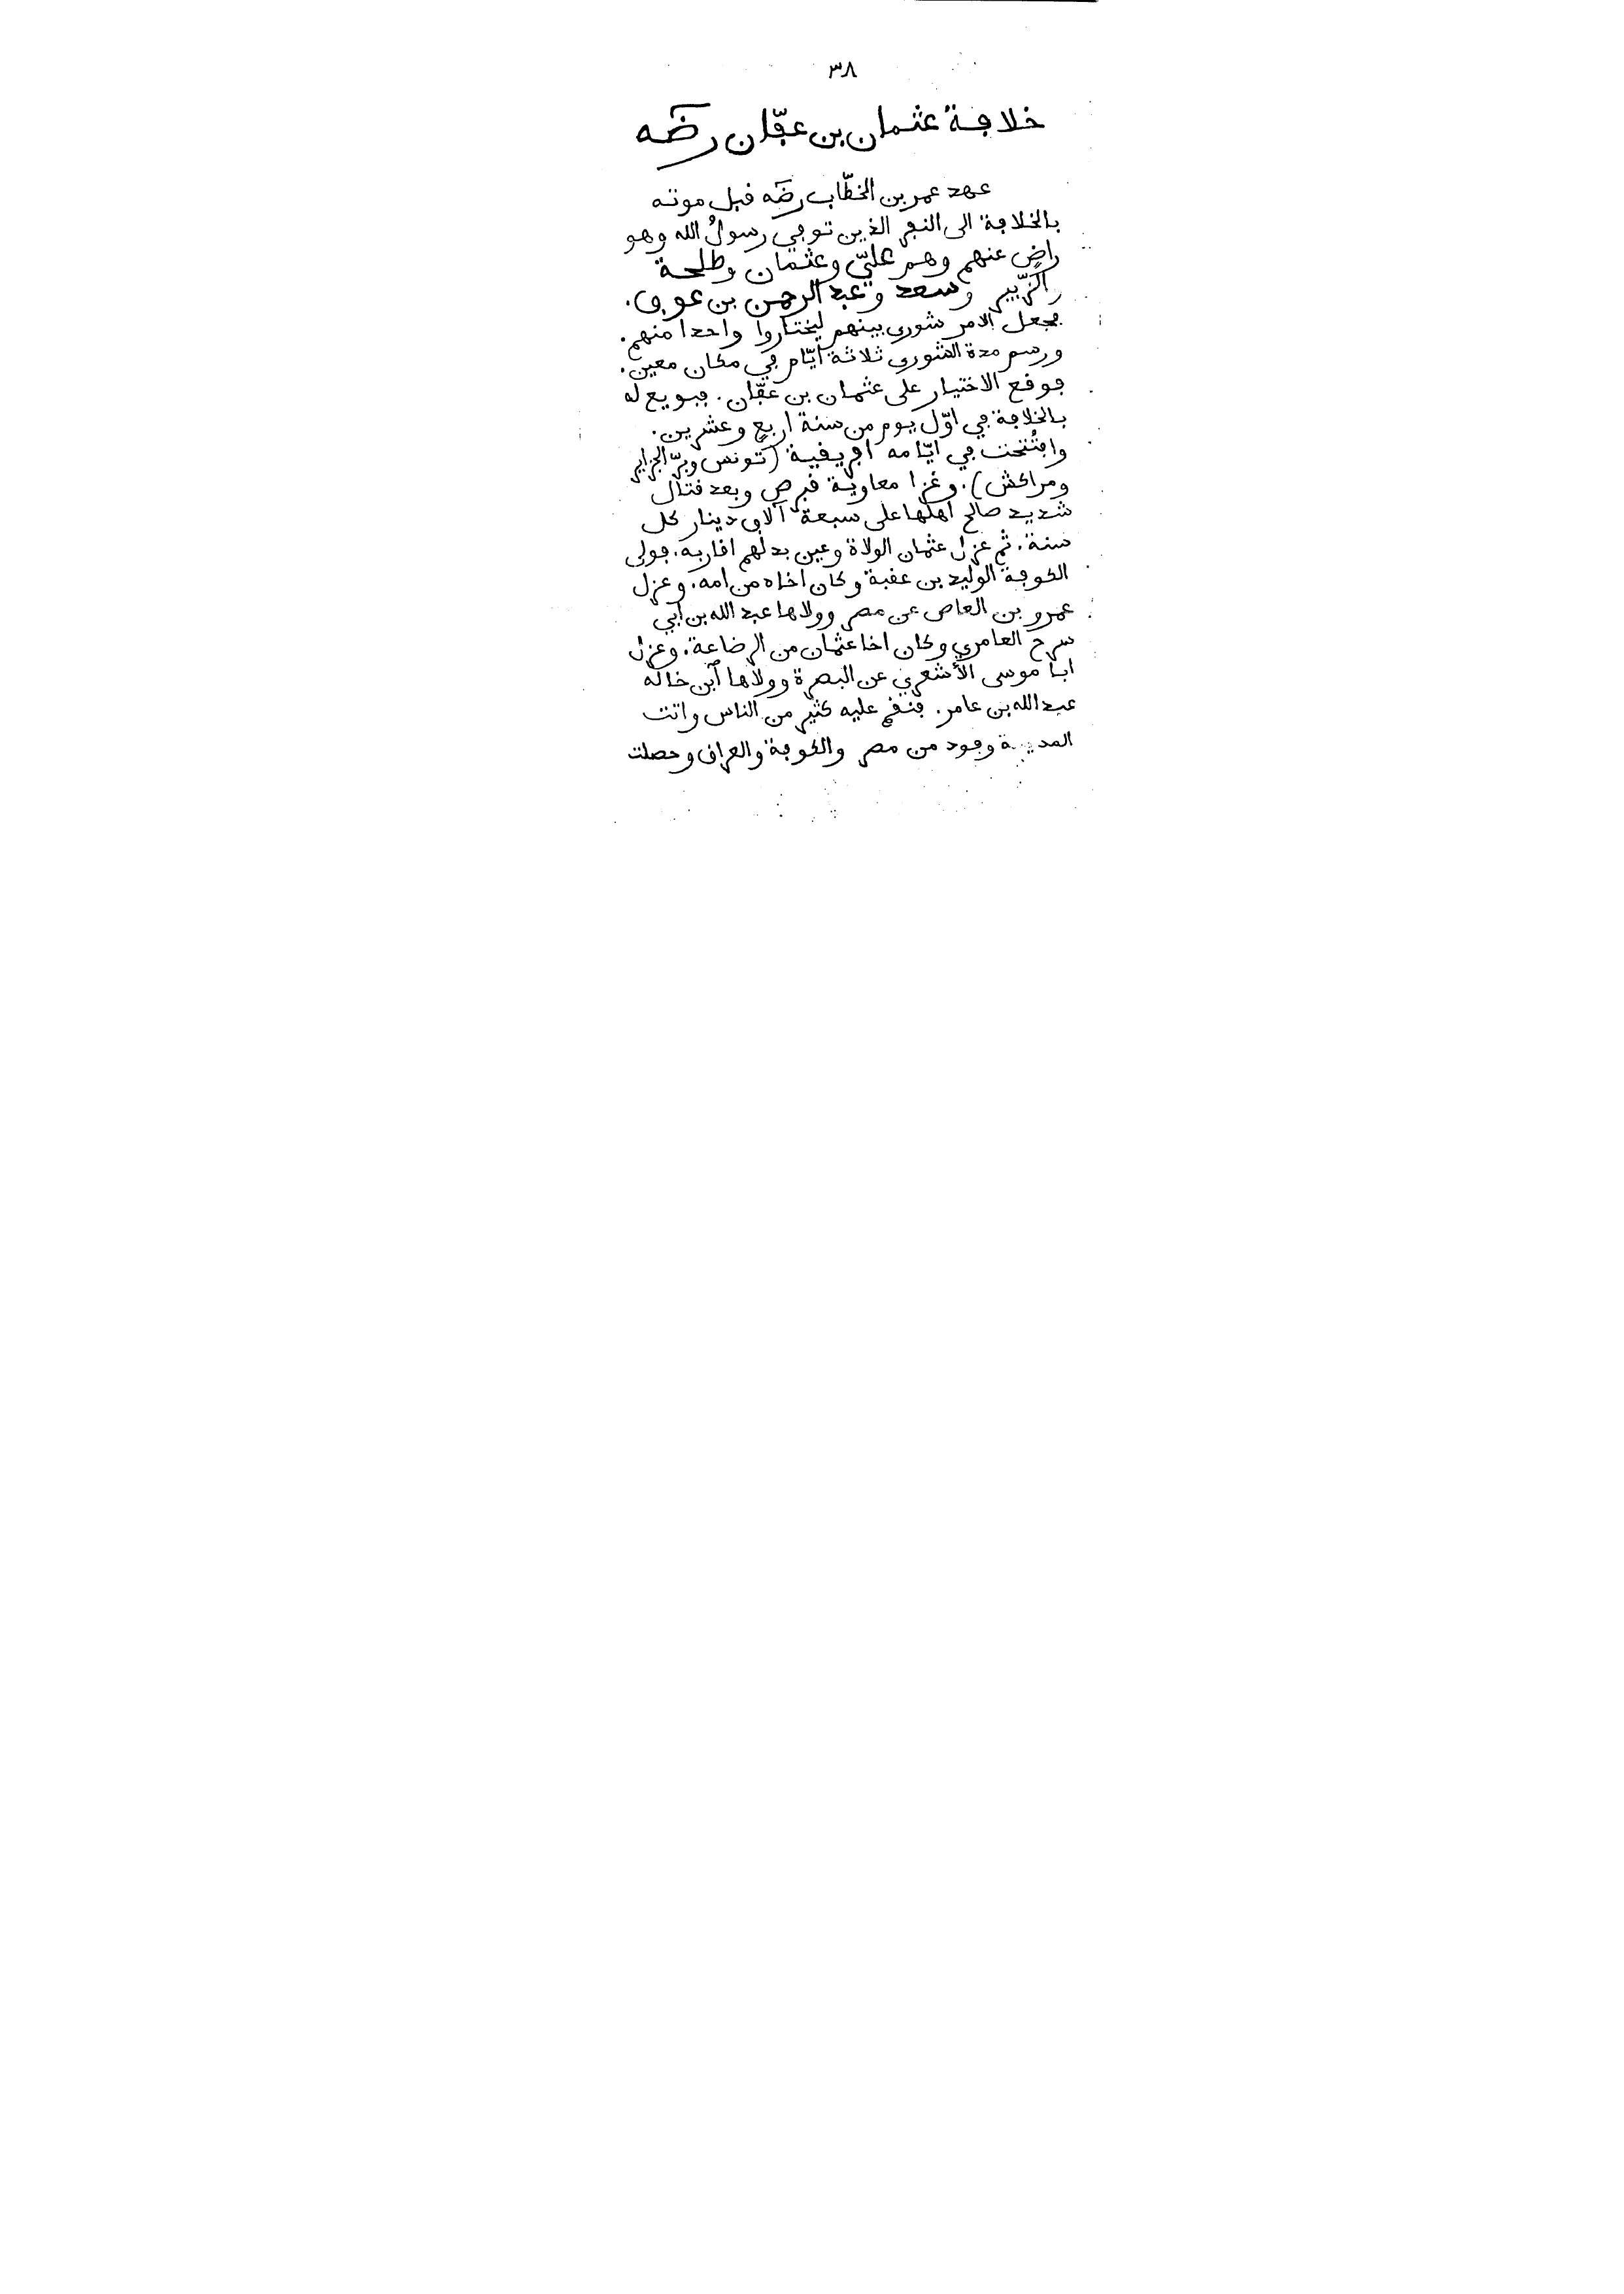 ٣٨
خلافة عثمان بن عفّان رضَه
عهد عمر بن الخطّاب رضَه قبل موته
بالخلافة الى النفر الذين توفي رسولُ الله وهو
راضٍ عنهم وهم عليّ وعثمان وطلحة
والزّبير وسعد وعبد الرحمن بن عوف.
فجعل الامر شورى بينهم ليختاروا واحدا منهم.
ورسم مدة الشورى ثلاثة ايّام في مكان معين.
فوقع الاختيار على عثمان بن عفّان. فبويع له
بالخلافة في اوّل يوم من سنة اربعٍ وعشرين.
وافتُتحت في ايّامه افريقية (تونس وبرّ الجزاير
ومراكش). وغزا معاوية قبرص وبعد قتال
شديد صالح اهلها على سبعة آلاف دينار كل
سنة. ثم عزل عثمان الولاة وعين بدلهم اقاربه. فولى
الكوفة الوليد بن عقبة وكان اخاه من امه. وعزل
عمرو بن العاص عن مصر وولاها عبد الله بن أبي
سرح العامري وكان اخا عثمان من الرضاعة. وعزل
ابا موسى الأشعري عن البصرة وولاها ٱبن خاله
عبد الله بن عامر. فنقم عليه كثير من الناس واتت
المدينة وفود من مصر والكوفة والعراق وحصلت